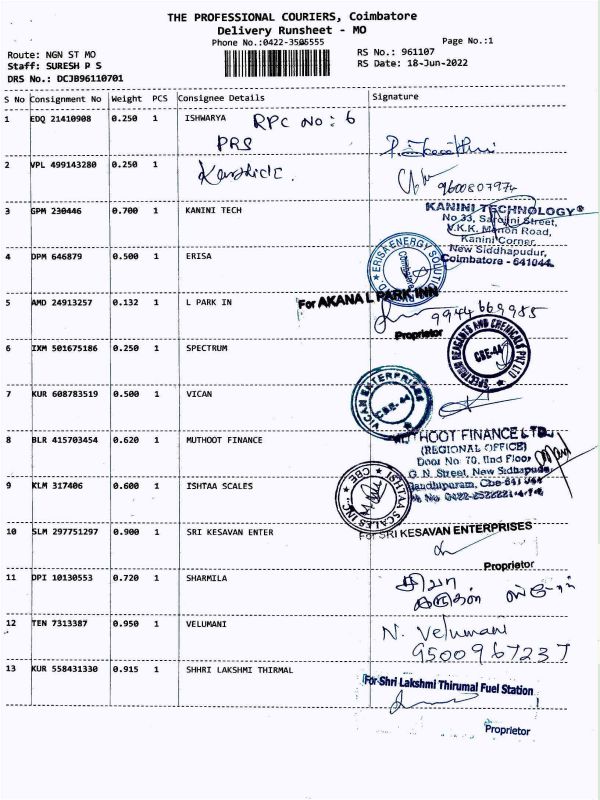 THE PROFESSIONAL COURIERS, Coimbatore
Delivery Runsheet - MO
Phone No.:0422-3505555
Page No.:1
Route: NGN ST MO
RS No.: 961107
Staff: SURESH P S
RS Date: 18-Jun-2022
DRS No.: DCJB96110701
S No Consignment No Weight PCS Consignee Details Signature
1 EDQ 21410908 0.250 1 ISHWARYA RPC No: 6
PRS
2 VPL 499143280 0.250 1
9600807974
3 GPM 230446 0.700 1 KANINI TECH
KANINI TECHNOLOGY
No 33, Sarojini Street,
V.K.K. Menon Road,
Kanini Corner,
New Siddhapudur,
Coimbatore - 641044.
4 DPM 646879 0.500 1 ERISA
ERISA ENERGY SOLUTION
Coimbatore
5 AMD 24913257 0.132 1 L PARK IN
For AKANA L PARK INN
9944669985
Proprietor
6 IXM 501675186 0.250 1 SPECTRUM
SPECTRUM REAGENTS AND CHEMICALS PVT LTD
CBE-44
7 KUR 608783519 0.500 1 VICAN
VICAN ENTERPRISES
CBE-44
8 BLR 415703454 0.620 1 MUTHOOT FINANCE
MUTHOOT FINANCE LTD.,
(REGIONAL OFFICE)
Door No: 70, IInd Floor
G. N. Street, New Sidhapudur
Gandhipuram, Cbe-641 044
9 KLM 317406 0.600 1 ISHTAA SCALES
ISHTAA SCALES INC.
CBE
10 SLM 297751297 0.900 1 SRI KESAVAN ENTER
For SRI KESAVAN ENTERPRISES
Proprietor
11 DPI 10130553 0.720 1 SHARMILA
12 TEN 7313387 0.950 1 VELUMANI
N. Velumani
9500967237
13 KUR 558431330 0.915 1 SHHRI LAKSHMI THIRMAL
For Shri Lakshmi Thirumal Fuel Station
Proprietor